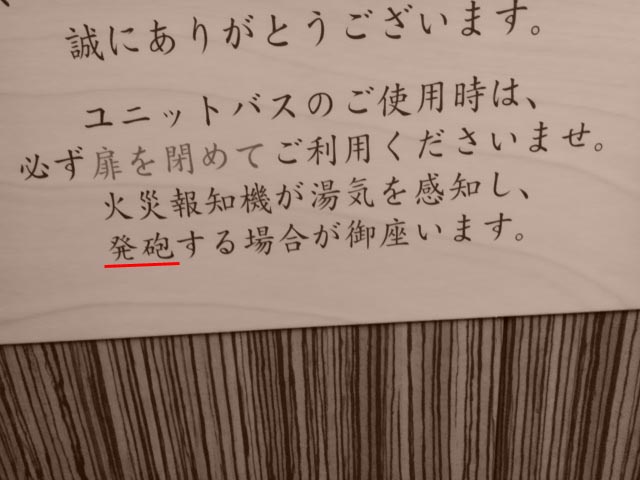 誠にありがとうございます。
ユニットバスのご使用時は、
必ず扉を閉めてご利用くださいませ。
火災報知機が湯気を感知し、
発砲する場合が御座います。